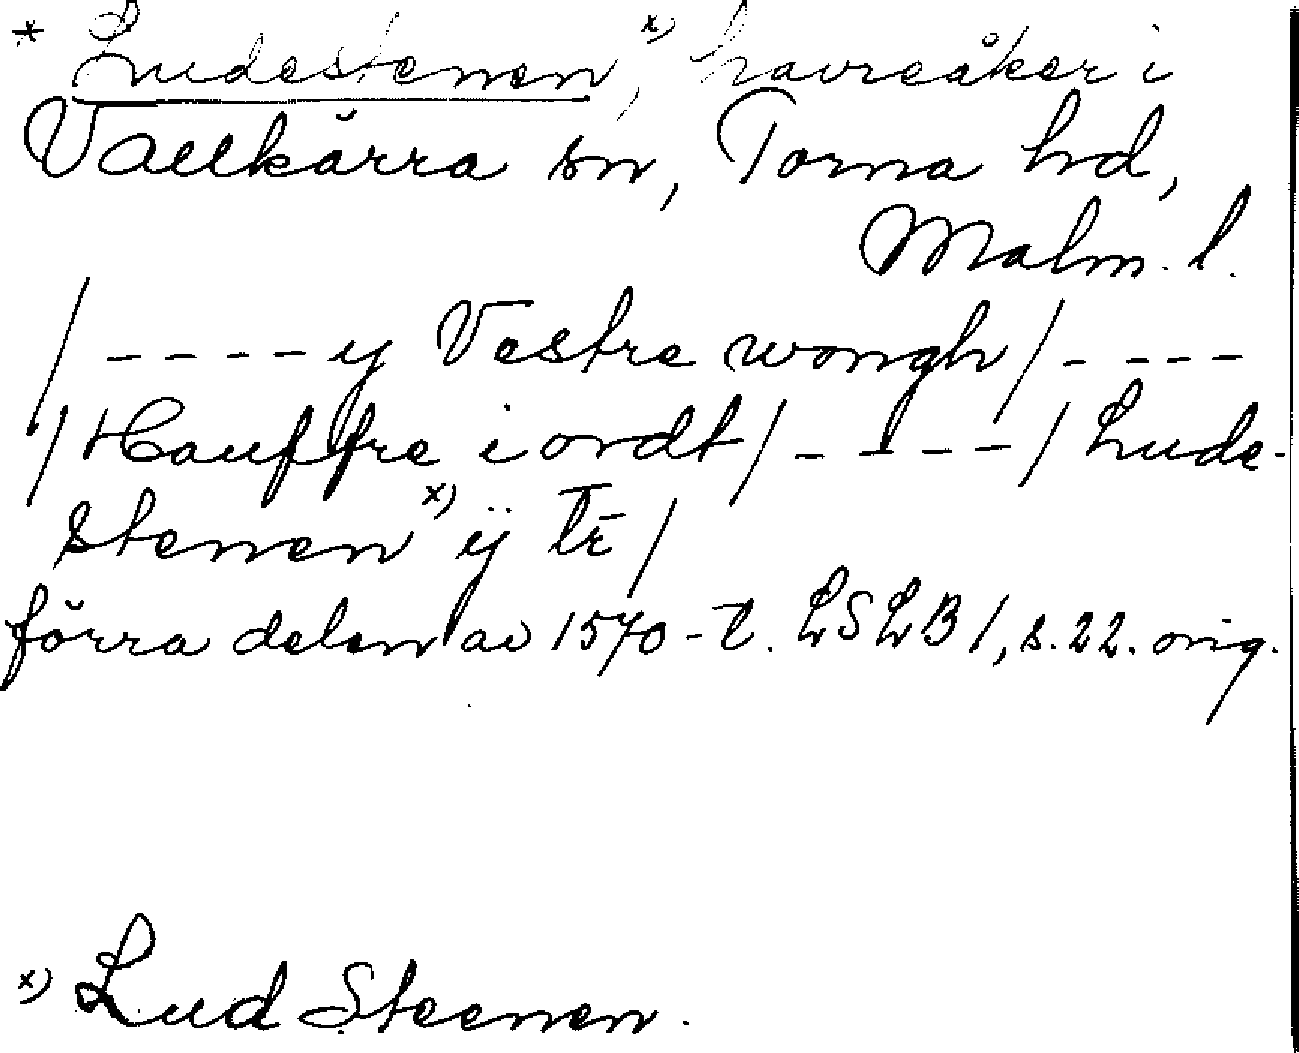 * Ludestenen,x) havreåker i
Vallkärra sn, Torna hd,
Malm. l.
/ - - - - y Vestre wongh / - - - -
/ Hauffre iordt / - - - - / Lude-
stenenx) ÿ tr̄ /
förra delen av 1570-t. LSLB 1, s. 22. orig.
x) Lud Steenen.